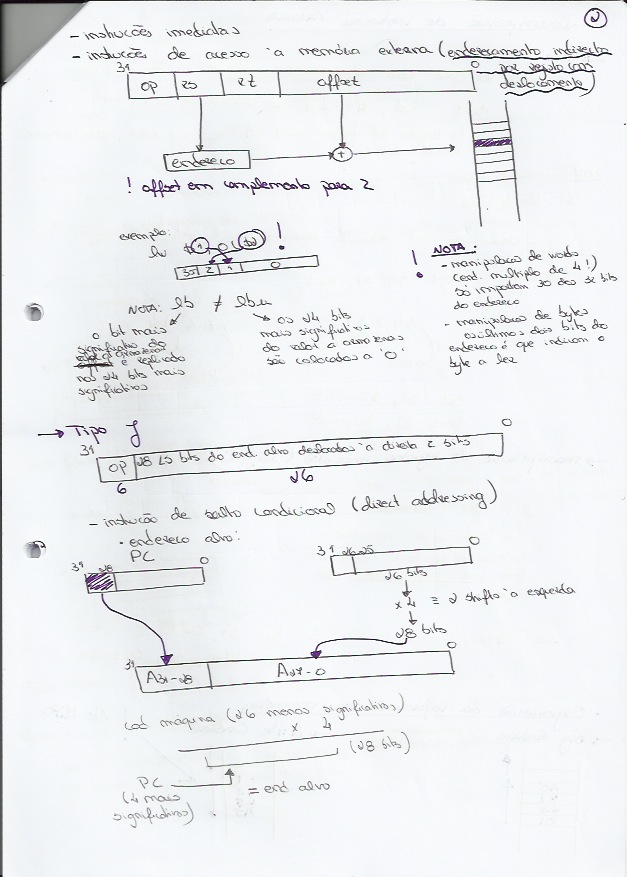 2
- instruções imediatas
- instuções de acesso à memória externa (enderecamento indirecto
por registo com
deslocamento)
31 0
OP rs rt offset
endereco +
! offset em complemento para 2
exemplo:
lw $1, 0($2) !
35 2 1 0
NOTA: lb ≠ lbu
o bit mais
significativo do
valor a armazenar
é replicado
nos 24 bits mais
significativos
os 24 bits
mais significativos
do valor a armazenar
são colocados a '0'
! NOTA:
- manipulacao de words
(end. multiplo de 4!)
só importam 30 dos 32 bits
do endereco
- manipulacao de bytes
os últimos dois bits do
endereco é que indicam o
byte a ler
→ Tipo J
31 0
OP 28 LS bits do end. alvo deslocados à direita 2 bits
6 26
- instrucão de salto condicional (direct addressing)
• endereco alvo:
PC
31 28 0
31 26 25 0
26 bits
x 4 ≡ 2 shifts à esquerda
28 bits
31 0
A31-28 A27-0
cod máquina (26 menos significativos)
x 4
(28 bits)
PC
(4 mais
significativos)
= end alvo